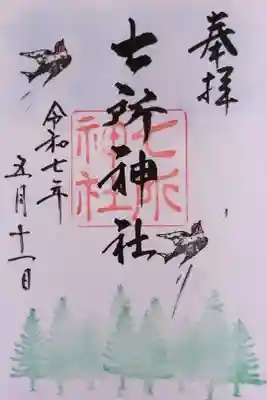 奉拝
七所神社
七所神社
令和七年
五月十一日